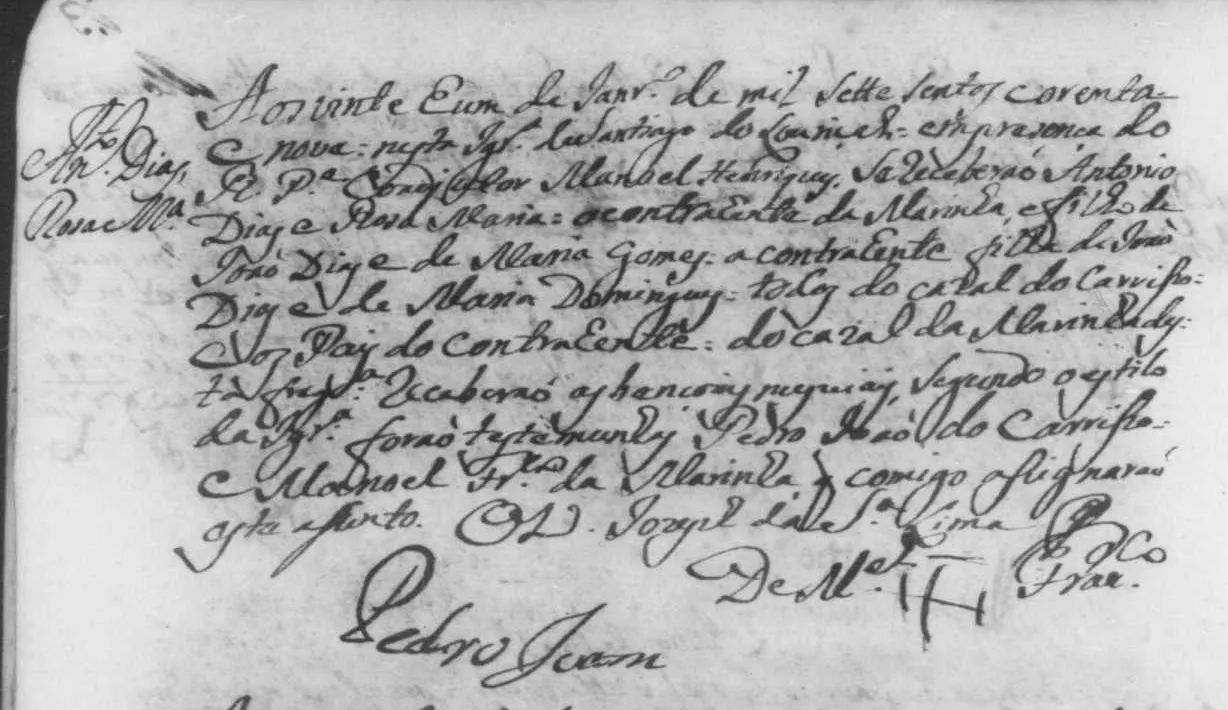 Ant.º Dias,
Rosa M.ª
Aos vinte e um de Janr.º de mil sette sentos corenta
e nove = nesta Igr.ª de Santiago do Louriçal = em presença do
R. P.e Coadjutor Manoel Henriques, se receberaõ Antonio
Dias e Rosa Maria = o contraente da Marinha, e filho de
Joaõ Dias e de Maria Gomes = a contraente filha de Joaõ
Dias e de Maria Domingues = todos do cazal do Carrisso =
e os Pais do contraente = do cazal da Marinha des
ta freg.ª receberaõ as bencois nupciais, segundo o estilo
da Igr.ª foraõ testemunhas Pedro Joaõ do Carrisso =
e Manoel Fr.co da Marinha e comigo assignaraõ
este assento. O V. Jozeph da S.ª Lima
De M.el Fran.co
Pedro Juam